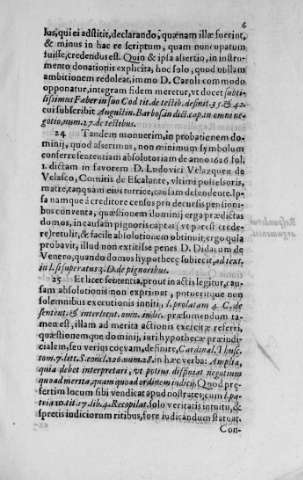 6
lus, qui ei adstitit, declarando, quænam illæ fuerint,
& minus in hac re scriptum, quam nuncupatum
fuisse, credendus est. Quin & ipsa assertio, in instru-
mento donationis explicita, hoc solo, quod ullam
ambitionem redoleat, immo D. Caroli commodo
opponatur, integram fidem meretur, vt docet subti-
lissimus Faber in suo Cod. tit. de testib. definit. 35. & 42.
cui subscribit Augustin. Barbosa in dict. cap. in omni ne-
gotio, num. 27. de testibus.
24 Tandem monuerim, in probationem do-
minij, quod asserimus, non minimum symbolum
conferre sententiam absolutoriam de anno 1626 fol.
1. dictam in favorem D. Ludovici Velazquez de
Velasco, Comitis de Escalante, vltimi possessoris,
causam defendente. Ip-
sa namque à creditore census pro decursis pensioni-
bus conventa, quæstionem dominij erga prædictas
domos, in causam pignoris captas (vt par est crede-
re) retulit, & facile absolutionem obtinuit, ergo quia
probavit, illud non extitisse penes D. Didacum de
Venero, quando domos hypothecę subiecit, ad text.
in l. si superatus 3. D. de pignoribus.
25 Et licet sententia, prout in actis legitur, cau-
sam absolutionis non exprimat, potueritque non
solemnibus executionis initiis, l. prolatam 4. C. de
sentent. & interlocut. omn. iudic. præsumendum ta-
men est, illam ad merita actionis exercitæ referri,
quæstionemque dominij, iuri hypothecæ præiudi-
cialem, seu verius coævam, definite, Cardinal. Thusc.
tom. 7. litt. S. concl. 126. num. 28. in hæc verba: Amplia,
quia debet interpretari, vt potius dispiciat negotium
quoad merita, quam quoad ordinem iudicij. Quod præ-
sertim locum sibi vendicat apud nostrates, cum l. pa-
tria 10. tit. 17. lib. 4. Recopilat. solo veritatis intuitu, &
spretis iudiciorum ritibus, fore iudicandum statuat.
Con-